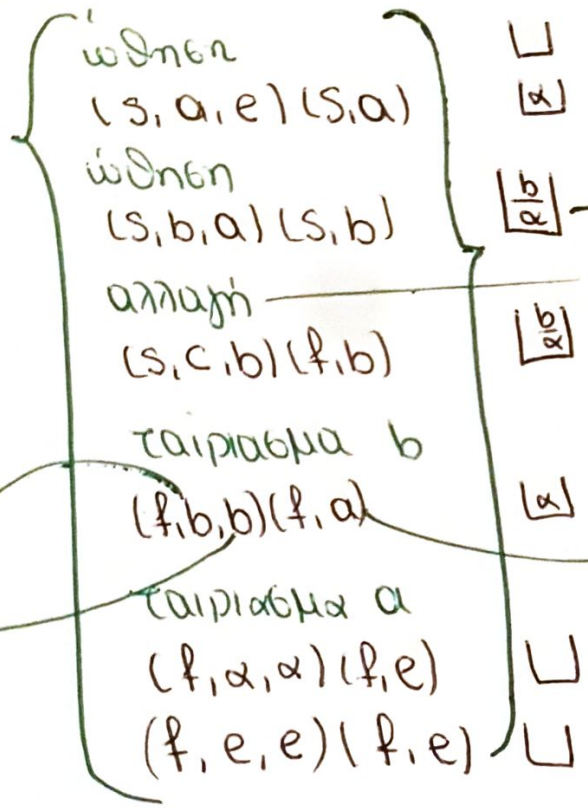 ώθηση
(s, a, e) (s, a)
α
ώθηση
(s, b, a) (s, b)
b
α
αλλαγή
(s, c, b) (f, b)
b
α
ταίριασμα b
(f, b, b) (f, a)
α
ταίριασμα a
(f, α, α) (f, e)
(f, e, e) (f, e)